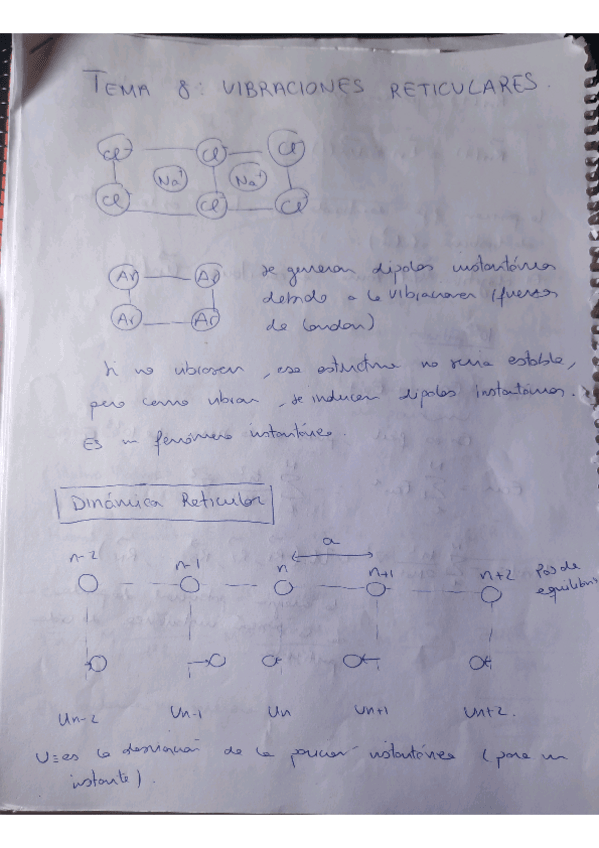 TEMA 8: VIBRACIONES RETICULARES.
Cl⁻ Cl⁻ Cl⁻
Na⁺ Na⁺
Cl⁻ Cl⁻ Cl⁻
Ar Ar
Ar Ar
se generan dipolos instantáneos
debido a la vibraciones (fuerzas
de London)
Si no vibrasen, esa estructura no sería estable,
pero como vibran, se inducen dipolos instantáneos.
Es un fenómeno instantáneo.
Dinámica Reticular
a
n-2 n-1 n n+1 n+2 Pos de
equilibrio
Un-2 Un-1 Un Un+1 Un+2.
U≡es la desviación de la posición instantánea (para un
instante).